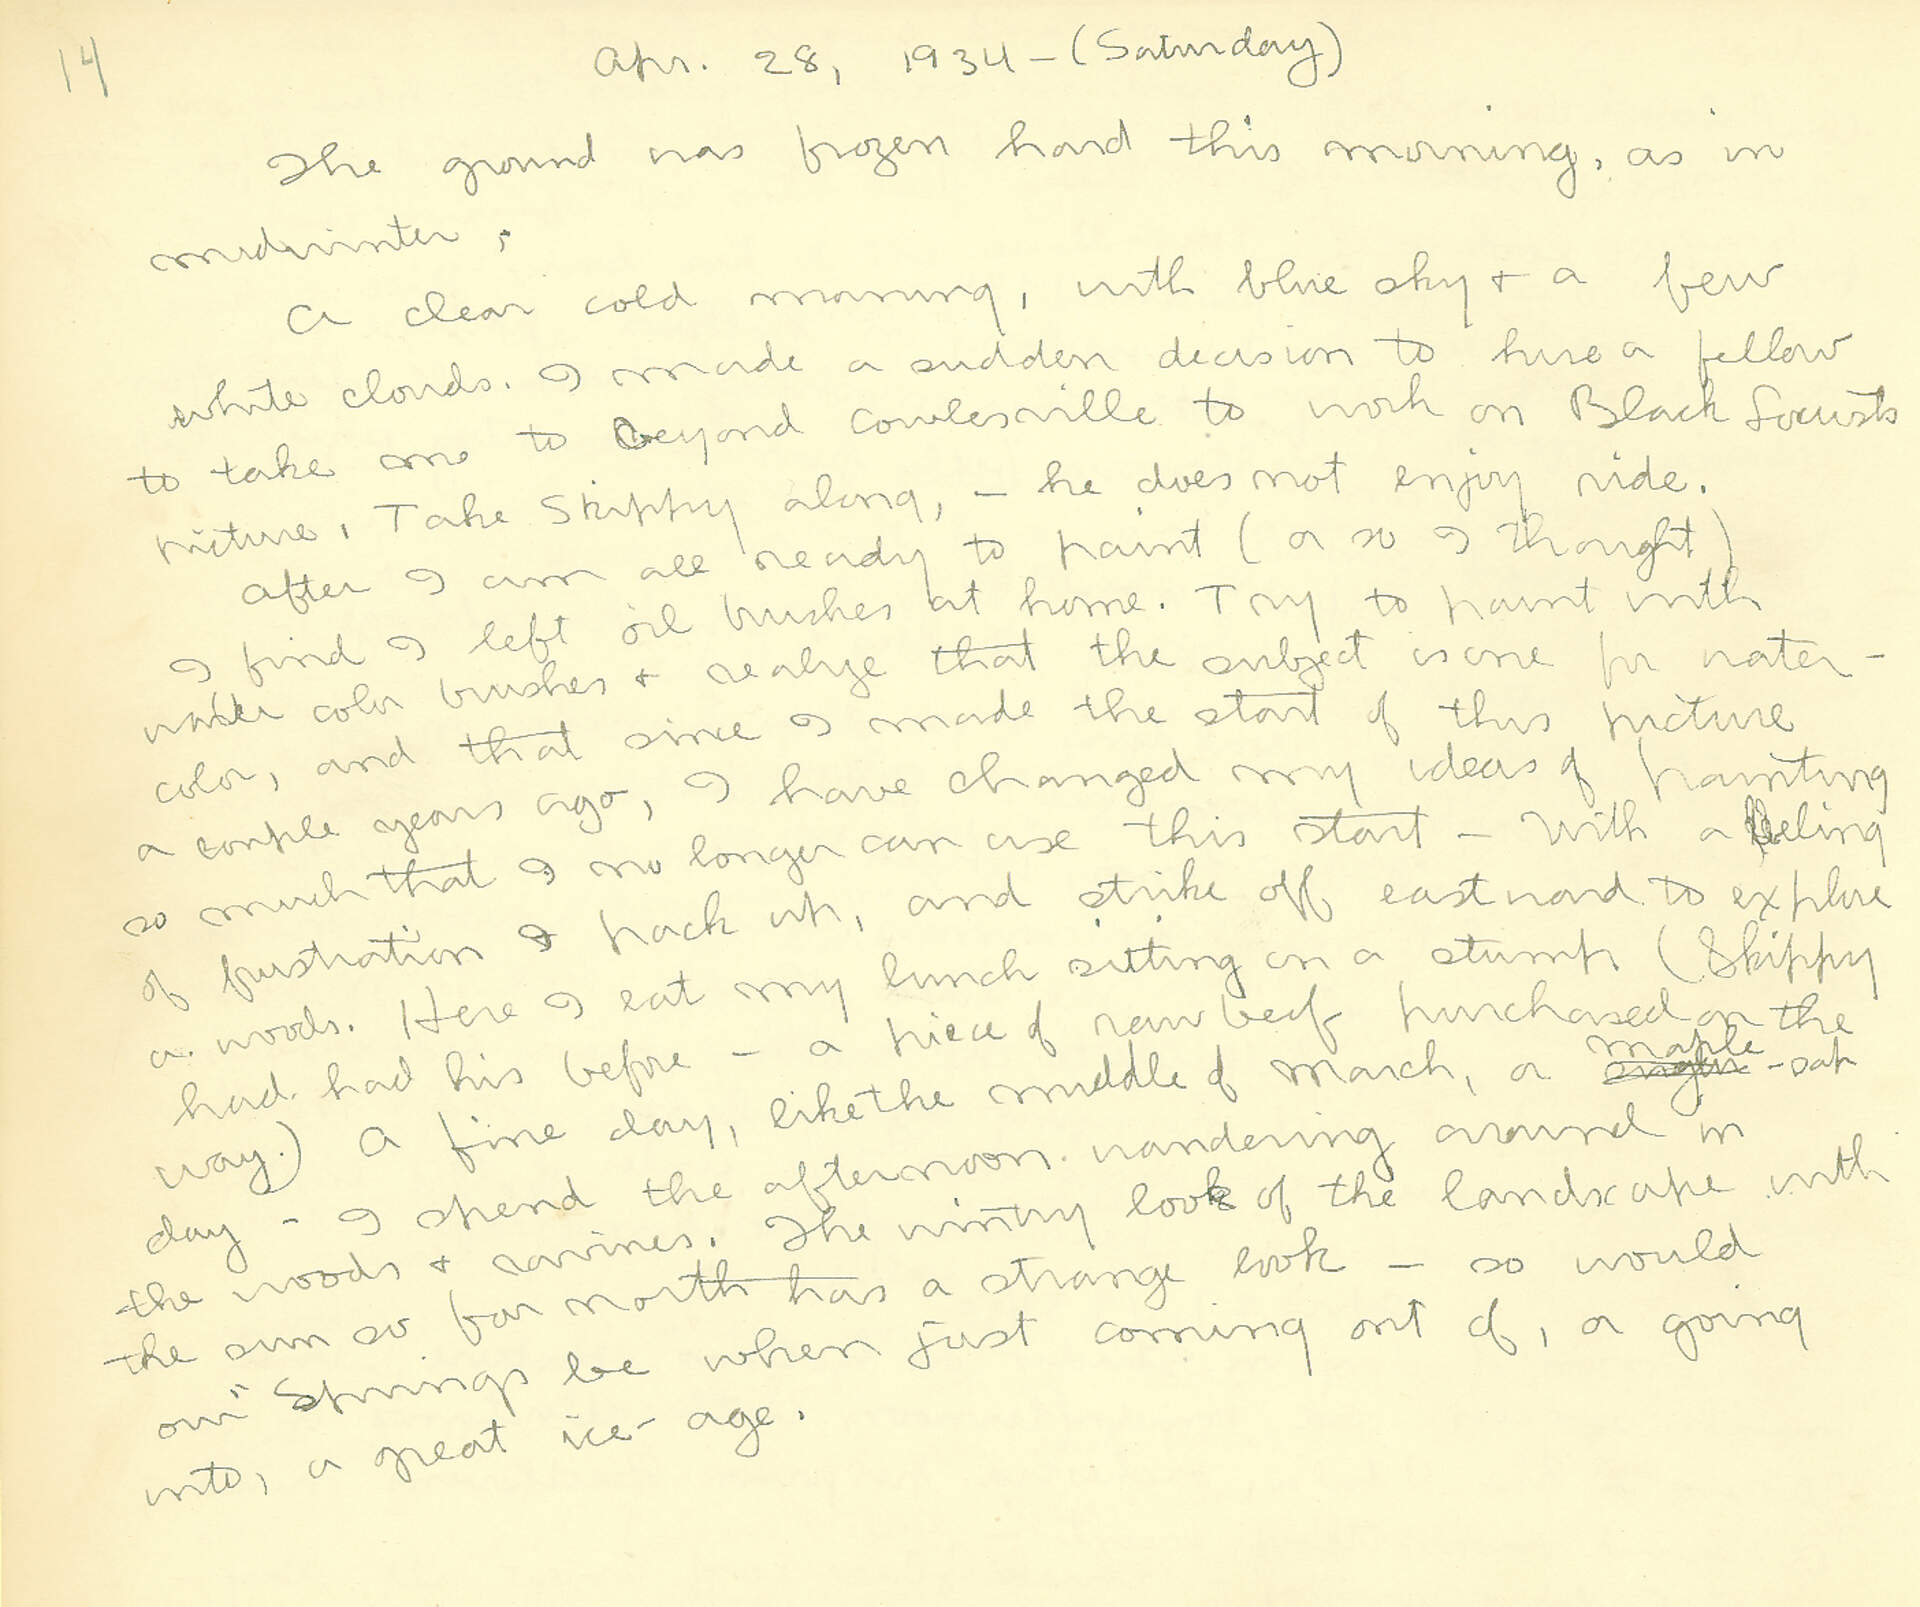 14
Apr. 28, 1934 – (Saturday)
The ground was frozen hard this morning, as in
midwinter.
A clear cold morning, with blue sky + a few
white clouds. I made a sudden decision to hire a fellow
to take me to beyond Cowlesville to work on Black Locusts
picture. Take Skippy along, – he does not enjoy ride.
After I am all ready to paint (or so I thought)
I find I left oil brushes at home. Try to paint with
water color brushes + realize that the subject is one for water-
color, and that since I made the start of this picture
a couple years ago, I have changed my ideas of painting
so much that I no longer can use this start – With a feeling
of frustration I pack up, and strike off eastward to explore
a woods. Here I eat my lunch sitting on a stump (Skippy
had had his before – a piece of raw beef purchased on the
way.) A fine day, like the middle of March, a maple -sap
day – I spend the afternoon wandering around in
the woods + ravines. The wintry look of the landscape with
the sun so far north has a strange look – so would
our Springs be when just coming out of, or going
into, a great ice-age.